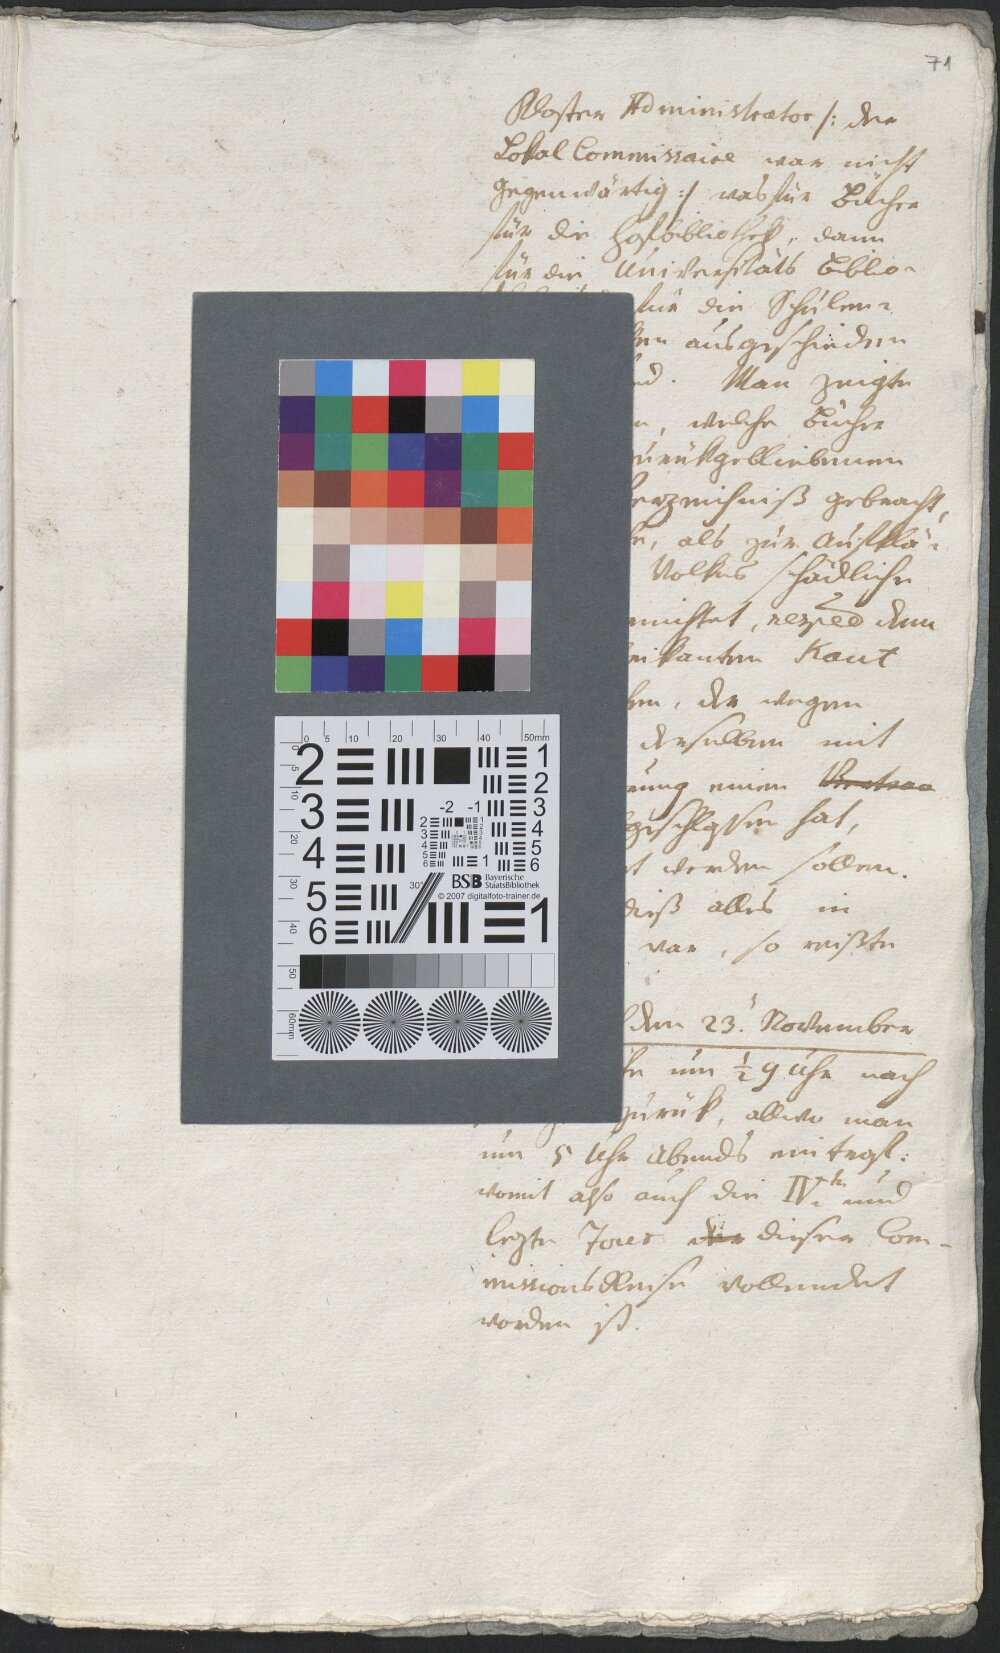 71
Kloster Administrator /: der
Lokal Commissaire war nicht
gegenwärtig :/ was für Bücher
für die Hofbibliothek, dann
für die Universitäts Biblio-
für die Schulen-
en ausgeschieden
nd. Man zeigte
n, welche Bücher
zurükgebliebenen
erzeichniß gebracht,
e, als zur Aufklä-
Volkes schädliche
ernichtet, resped dem
rikanten Kaut
ben, der wegen
derselben mit
rung einen
geschlossen hat,
t werden sollen.
dieß alles in
war, so reißte
den 23. November
te um ½ 9 Uhr nach
zurük, allwo man
um 5 Uhr Abends eintraf:
womit also auch die IVte und
lezte Tour der dieser Com-
missionsReise vollendet
worden ist.
0 5 10 20 30 40 50mm
0 5 10 20 30 40 50 60mm
2 3 4 5 6
1 2 3 4 5 6
-2 -1
2 3 4 5 6
1
30°
BSB Bayerische
StaatsBibliothek
© 2007 digitalfoto-trainer.de
1